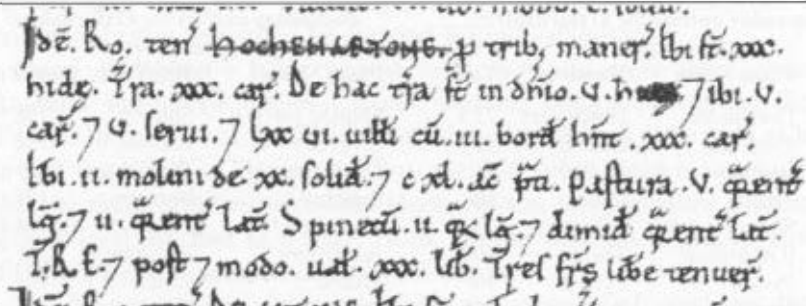 Idē. Ro. ten̄ HOCHENARTONE. p trib; maner̄. Ibi st̄. xxx.
hidę. Tr̄a. xxx. car̄. De hac tr̄a st̄ in dn̄io. v. 7 ibi. v.
car̄. 7 v. serui. 7 lxx vi. uilli cū. iii. bord hn̄t. xxx. car̄.
Ibi. ii. molini de. xx. solid. 7 c xl. ac̄ pti. Pastura. v. qrent̄
lḡ. 7 ii. qrent̄ lat̄. Spinetū. ii. qr lḡ. 7 dimid qrent̄ lat̄.
T.R.E. 7 post 7 modo. ual. xxx. lib. Tres frs̄ libe tenuer̄.